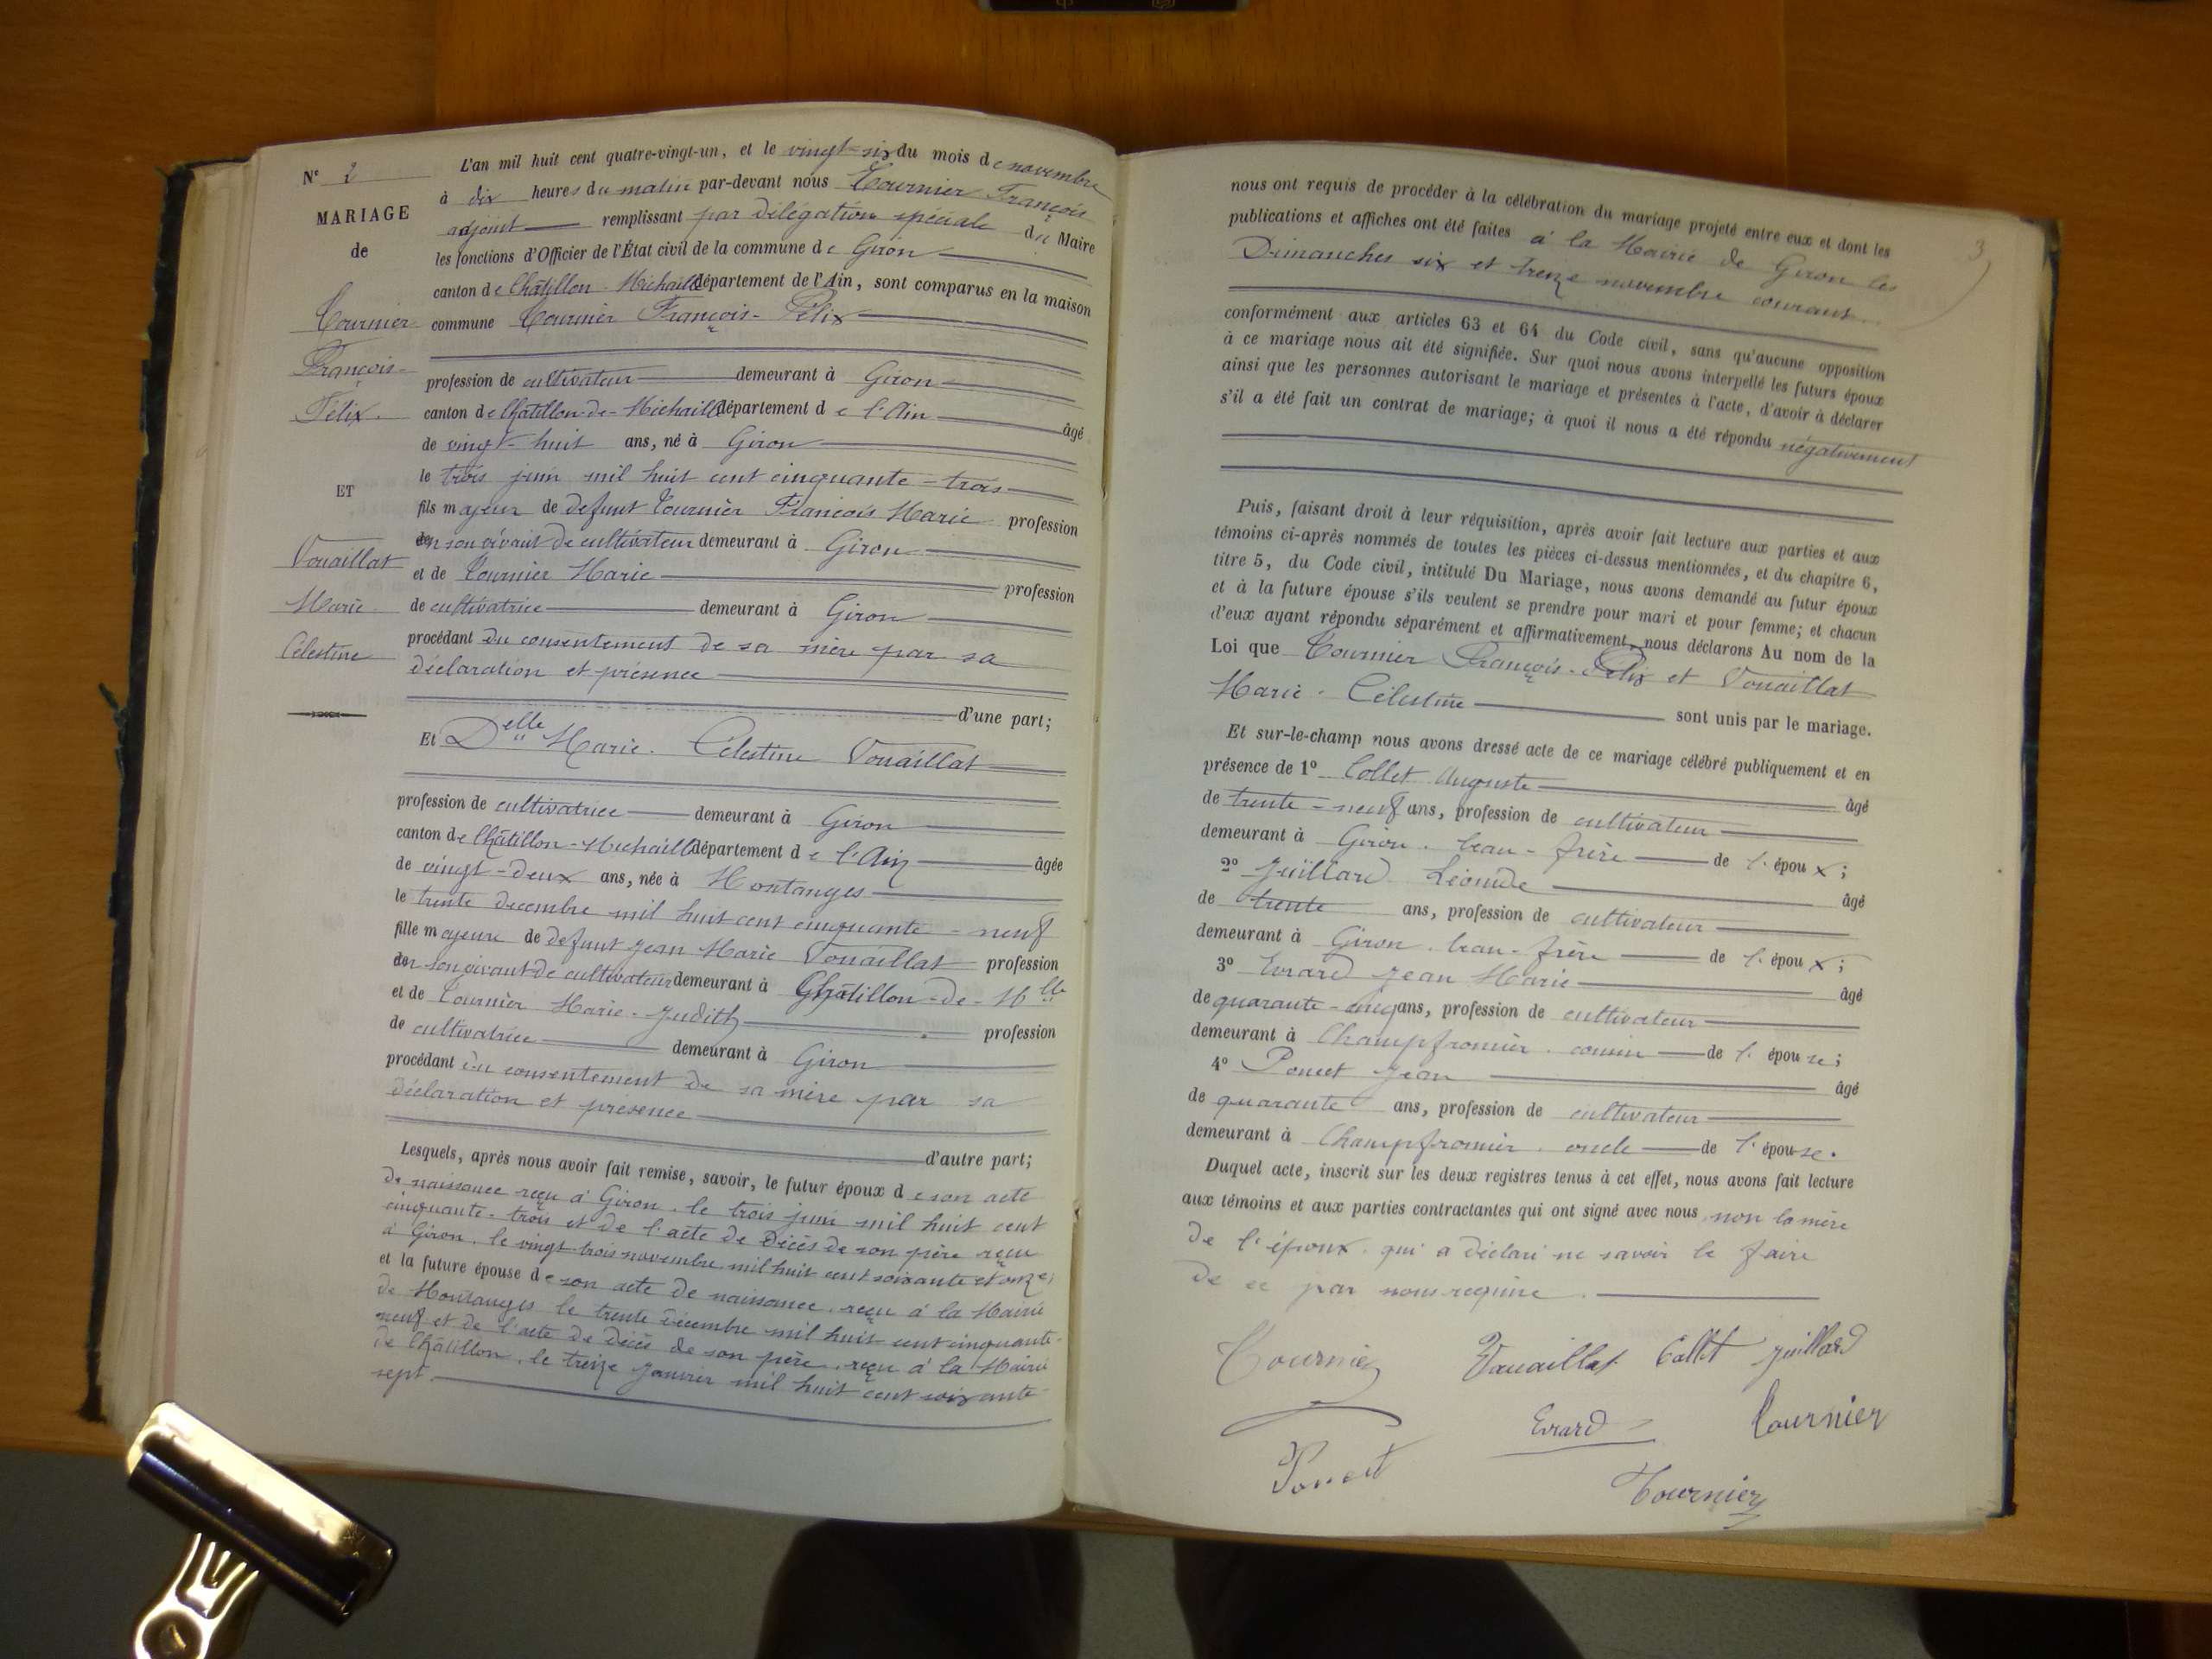 N° 2
MARIAGE
de
Tournier
François-
Félix.
ET
Vouaillat
Marie
Célestine
L'an mil huit cent quatre-vingt-un, et le vingt-six du mois de novembre
à dix heures du matin par-devant nous Tournier François
adjoint remplissant par délégation spéciale du Maire
les fonctions d'Officier de l'État civil de la commune de Giron
canton de Châtillon-Michaille département de l'Ain, sont comparus en la maison
commune Tournier François-Félix
profession de cultivateur demeurant à Giron
canton de Châtillon-de-Michaille département de l'Ain âgé
de vingt-huit ans, né à Giron
le trois juin mil huit cent cinquante-trois
fils majeur de defunt Tournier François Marie profession
en son vivant de cultivateur demeurant à Giron
et de Tournier Marie profession
de cultivatrice demeurant à Giron
procédant du consentement de sa mère par sa
déclaration et présence
d'une part;
Et Delle Marie-Célestine Vouaillat
profession de cultivatrice demeurant à Giron
canton de Châtillon-Michaille département de l'Ain âgée
de vingt-deux ans, née à Montanges
le trente decembre mil huit cent cinquante-neuf
fille majeure de defunt Jean Marie Vouaillat profession
en son vivant de cultivateur demeurant à Châtillon-de-Mlle
et de Tournier Marie-Judith profession
de cultivatrice demeurant à Giron
procédant du consentement de sa mère par sa
déclaration et présence
d'autre part;
Lesquels, après nous avoir fait remise, savoir, le futur époux de son acte
de naissance reçu à Giron, le trois juin mil huit cent
cinquante-trois et de l'acte de décès de son père reçu
à Giron, le vingt trois novembre mil huit cent soixante et onze;
et la future épouse de son acte de naissance, reçu à la Mairie
de Montanges le trente décembre mil huit cent cinquante-
neuf et de l'acte de décès de son père, reçu à la Mairie
de Châtillon, le treize janvier mil huit cent soixante-
sept.
3
nous ont requis de procéder à la célébration du mariage projeté entre eux et dont les
publications et affiches ont été faites à la Mairie de Giron les
Dimanches six et treize novembre courant
conformément aux articles 63 et 64 du Code civil, sans qu'aucune opposition
à ce mariage nous ait été signifiée. Sur quoi nous avons interpellé les futurs époux
ainsi que les personnes autorisant le mariage et présentes à l'acte, d'avoir à déclarer
s'il a été fait un contrat de mariage; à quoi il nous a été répondu négativement
Puis, faisant droit à leur réquisition, après avoir fait lecture aux parties et aux
témoins ci-après nommés de toutes les pièces ci-dessus mentionnées, et du chapitre 6,
titre 5, du Code civil, intitulé Du Mariage, nous avons demandé au futur époux
et à la future épouse s'ils veulent se prendre pour mari et pour femme; et chacun
d'eux ayant répondu séparément et affirmativement, nous déclarons Au nom de la
Loi que Tournier François-Félix et Vouaillat
Marie-Célestine sont unis par le mariage.
Et sur-le-champ nous avons dressé acte de ce mariage célébré publiquement et en
présence de 1° Collet Auguste âgé
de trente-neuf ans, profession de cultivateur
demeurant à Giron, beau-frère de l'époux;
2° Juillard Léonide âgé
de trente ans, profession de cultivateur
demeurant à Giron, beau-frère de l'époux;
3° Evrard Jean Marie âgé
de quarante-cinq ans, profession de cultivateur
demeurant à Champfromier, cousin de l'épouse;
4° Poncet Jean âgé
de quarante ans, profession de cultivateur
demeurant à Champfromier, oncle de l'épouse.
Duquel acte, inscrit sur les deux registres tenus à cet effet, nous avons fait lecture
aux témoins et aux parties contractantes qui ont signé avec nous, non la mère
de l'époux, qui a déclaré ne savoir le faire
de ce par nous requise.
Tournier Vouaillat Collet Juillard
Evrard Tournier
Poncet
Tournier